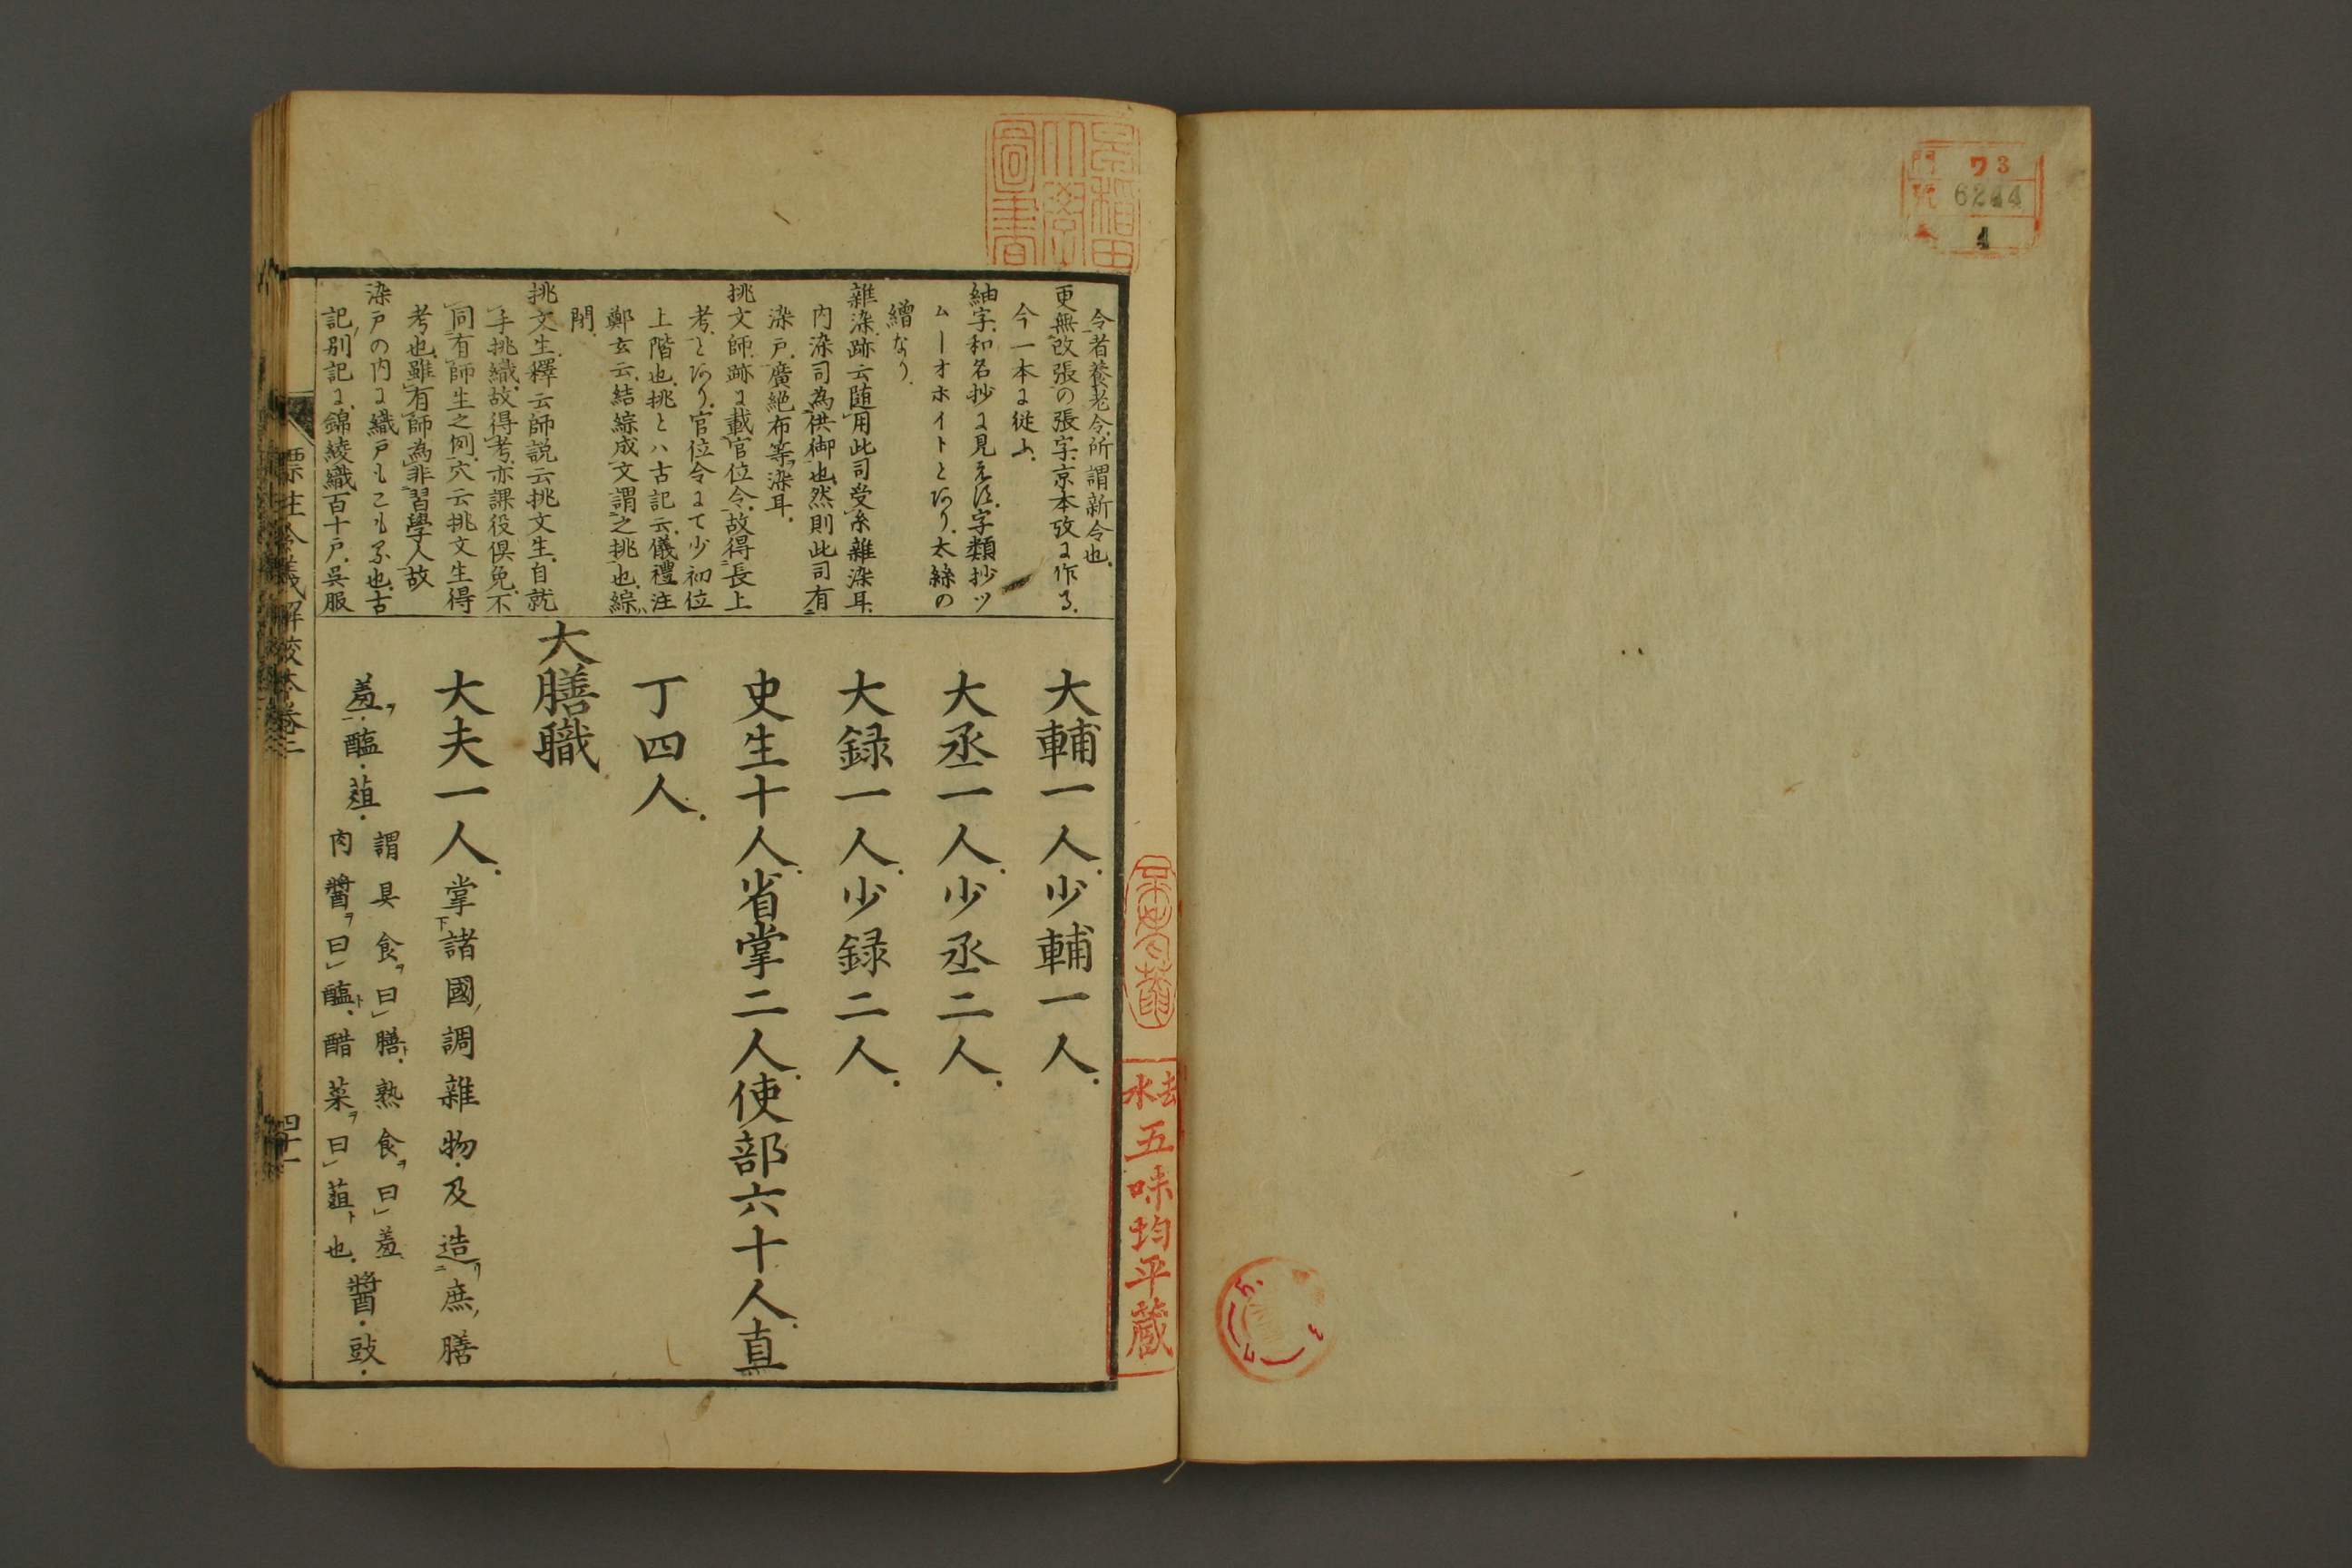 門 ワ3
號 6244
1
早稲田
大學
圖書
去水
五味均平藏
令者養老令所謂新令也、
更無改張の張字、京本攷に作る、
今一本に従ふ、
紬字、和名抄に見えず、字類抄ツ
ムーオホイトとあり、太絲の
繒なり、
雜染、跡云、随用此司受糸雜染耳、
内染司為供御也、然則此司有
染戸、廣絁布等染耳、
挑文師、跡に載官位令、故得長上
考、とあり、官位令にて少初位
上階也、挑とハ古記云、儀禮注
鄭玄云、結綜成文、謂之挑也、綜
閉、
挑文生、釋云、師説云、挑文生、自就
手挑織、故得考、亦課役倶免、不
同有師生之例、穴云、挑文生得
考也、雖有師為非習學人故
染戸の内に織戸もこもる也、古
記、別記に、錦綾織百十戸、呉服
大輔一人、少輔一人、
大丞一人、少丞二人、
大録一人、少録二人、
史生十人、省掌二人、使部六十人、直
丁四人、
大膳職
大夫一人、掌下諸國ノ調雜物、及造リニ庶ノ膳
羞ヲ一、醢、葅、謂具食ヲ曰膳ト、熟食ヲ曰羞
肉醬ヲ曰醢ト、醋菜ヲ曰葅ト也、醬、豉、
標注令義解校本卷二
四十一